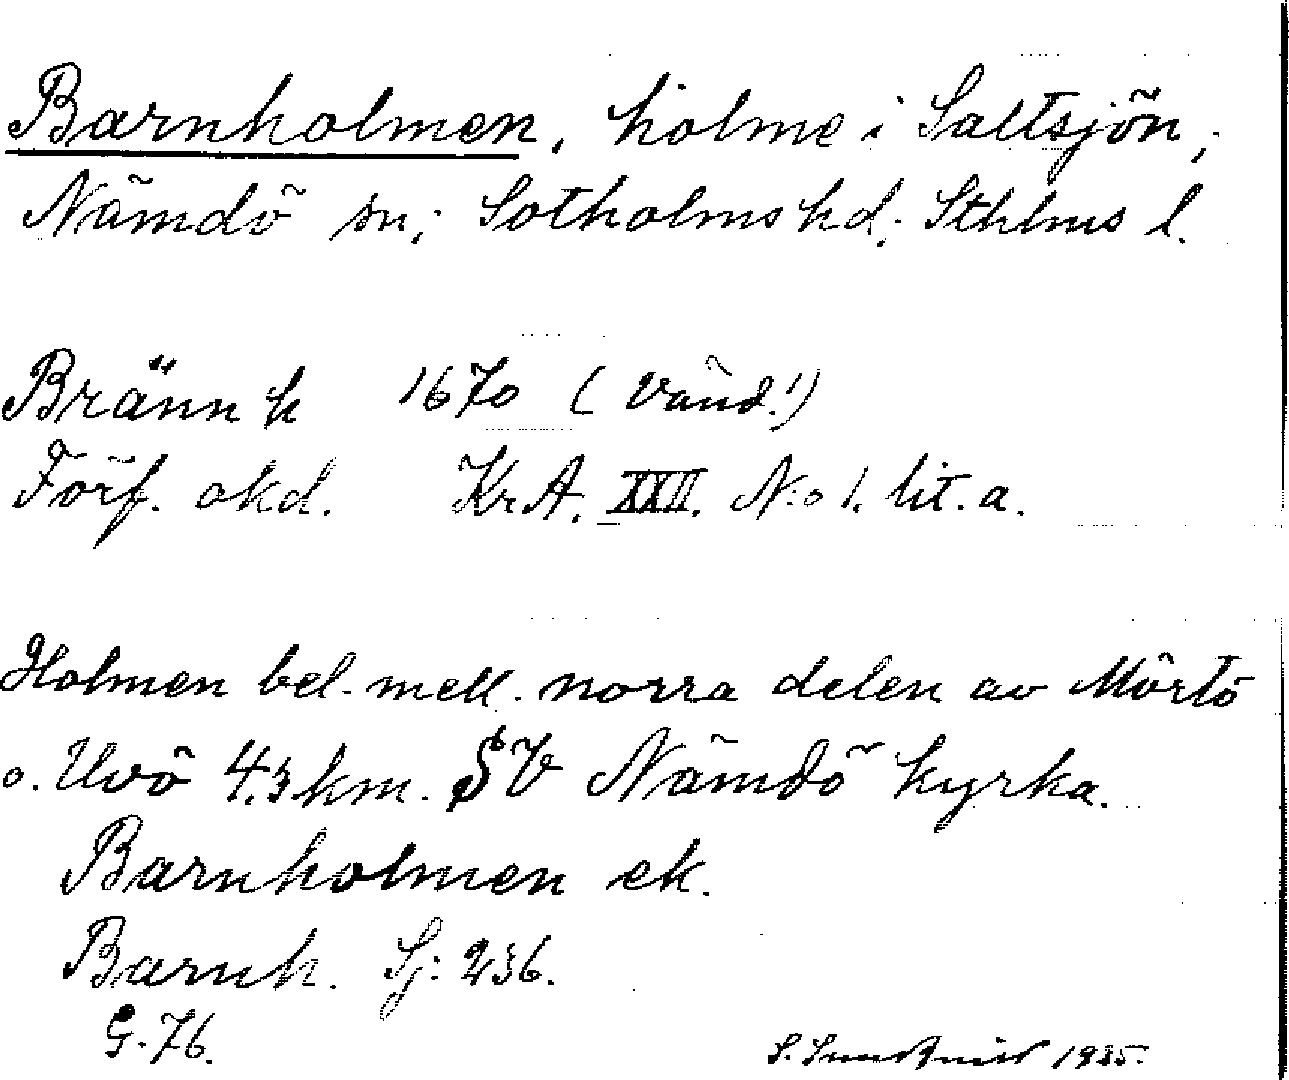 Barnholmen, holme i Saltsjön,
Nämdö sn; Sotholms hd; Sthlms l.
Bränn h 1670 (Vänd!)
Förf. okd. KrA. XXII. N:o 1. lit. a.
Holmen bel. mell. norra delen av Mörtö
o. Uvö 4.3 km. SV Nämdö kyrka.
Barnholmen ek.
Barnh. Sj: 236.
G. 76.
S. Sundqvist 1935.